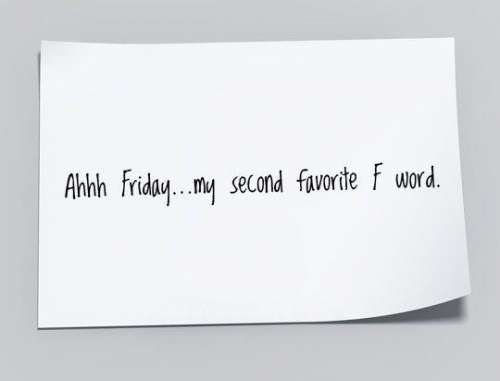 Ahhh Friday...my second favorite F word.